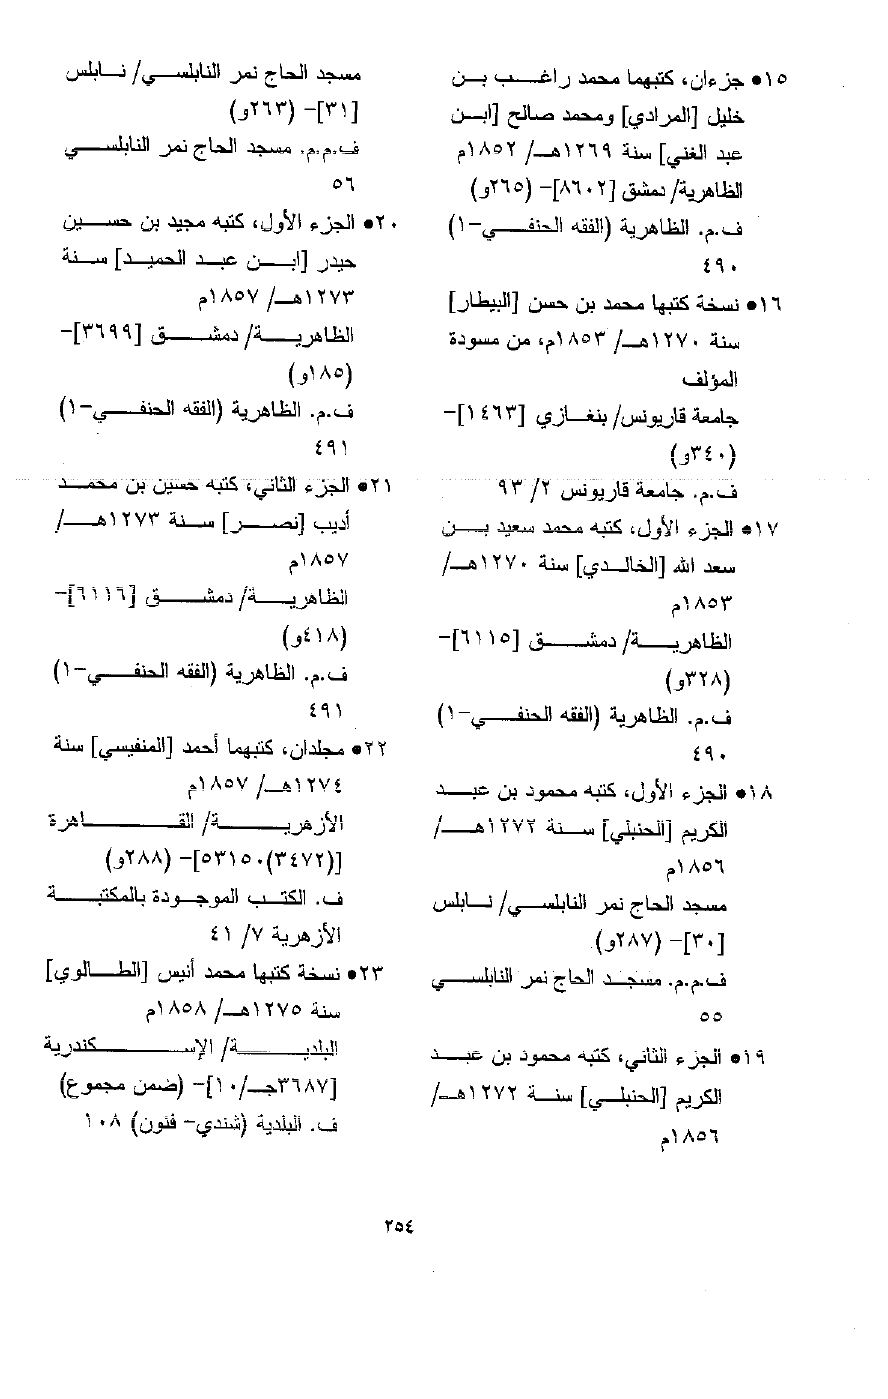 ١٥• جزءان، كتبهما محمد راغب بن
خليل [المرادي] ومحمد صالح [ابن
عبد الغني] سنة ١٢٦٩هـ/ ١٨٥٢م
الظاهرية/ دمشق [٨٦٠٢]- (٢٦٥و)
ف.م. الظاهرية (الفقه الحنفي-١)
٤٩٠
١٦• نسخة كتبها محمد بن حسن [البيطار]
سنة ١٢٧٠هـ/ ١٨٥٣م، من مسودة
المؤلف
جامعة قاريونس/ بنغازي [١٤٦٣]-
(٣٤٠و)
ف.م. جامعة قاريونس ٢/ ٩٣
١٧• الجزء الأول، كتبه محمد سعيد بن
سعد الله [الخالدي] سنة ١٢٧٠هـ/
١٨٥٣م
الظاهرية/ دمشق [٦١١٥]-
(٣٢٨و)
ف.م. الظاهرية (الفقه الحنفي-١)
٤٩٠
١٨• الجزء الأول، كتبه محمود بن عبد
الكريم [الحنبلي] سنة ١٢٧٢هـ/
١٨٥٦م
مسجد الحاج نمر النابلسي/ نابلس
[٣٠]- (٢٨٧و)
ف.م.م. مسجد الحاج نمر النابلسي
٥٥
١٩• الجزء الثاني، كتبه محمود بن عبد
الكريم [الحنبلي] سنة ١٢٧٢هـ/
١٨٥٦م
مسجد الحاج نمر النابلسي/ نابلس
[٣١]- (٢٦٣و)
ف.م.م. مسجد الحاج نمر النابلسي
٥٦
٢٠• الجزء الأول، كتبه مجيد بن حسين
حيدر [ابن عبد الحميد] سنة
١٢٧٣هـ/ ١٨٥٧م
الظاهرية/ دمشق [٣٦٩٩]-
(١٨٥و)
ف.م. الظاهرية (الفقه الحنفي-١)
٤٩١
٢١• الجزء الثاني، كتبه حسين بن محمد
أديب [نصر] سنة ١٢٧٣هـ/
١٨٥٧م
الظاهرية/ دمشق [٦١١٦]-
(٤١٨و)
ف.م. الظاهرية (الفقه الحنفي-١)
٤٩١
٢٢• مجلدان، كتبهما أحمد [المنفيسي] سنة
١٢٧٤هـ/ ١٨٥٧م
الأزهرية/ القاهرة
[(٣٤٧٢)٥٣١٥٠]- (٢٨٨و)
ف. الكتب الموجودة بالمكتبة
الأزهرية ٧/ ٤١
٢٣• نسخة كتبها محمد أنيس [الطالوي]
سنة ١٢٧٥هـ/ ١٨٥٨م
البلدية/ الإسكندرية
[٣٦٨٧جـ/١٠]- (ضمن مجموع)
ف. البلدية (شندي- فنون) ١٠٨
٢٥٤